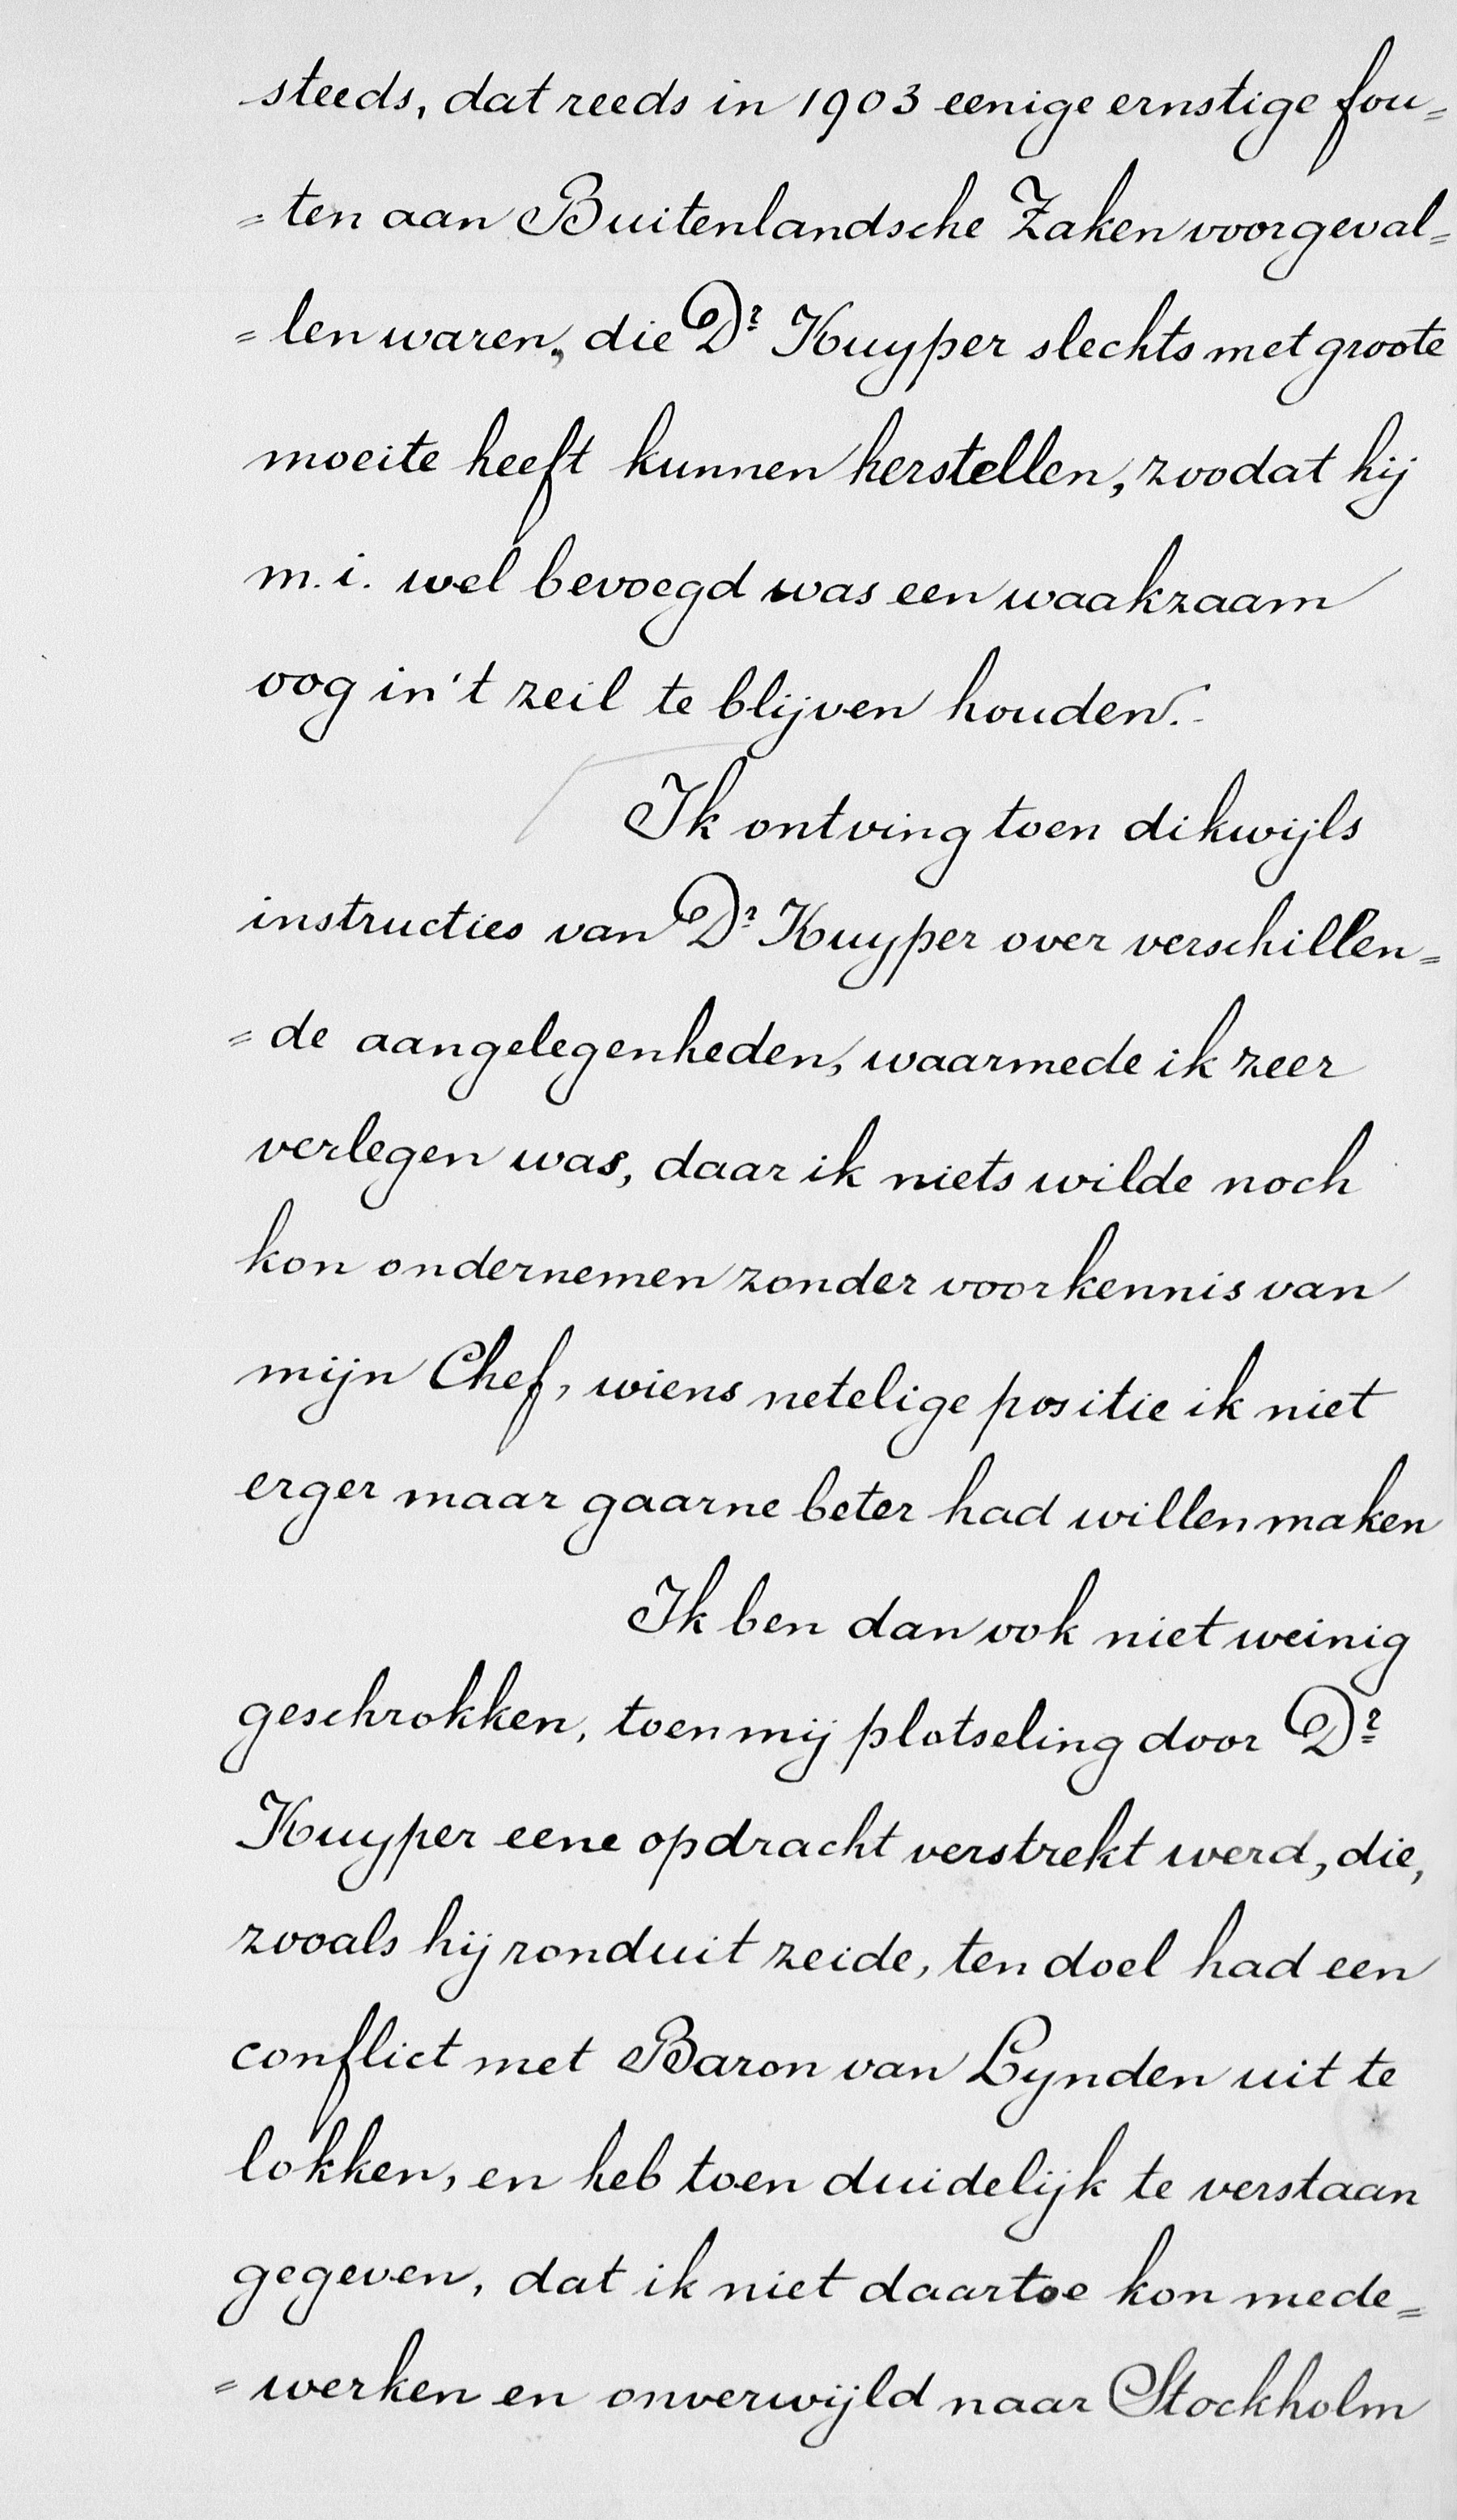 steeds, dat reeds in 1903 eenige ernstige fou=
=ten aan Buitenlandsche Zaken voorgeval=
=len waren, die Dr Kuyper slechts met groote
moeite heeft kunnen herstellen, zoodat hij
m.i. wel bevoegd was een waakzaam
oog in 't zeil te blijven houden.-
Ik ontving toen dikwijls
instructies van Dr Kuyper over verschillen=
=de aangelegenheden, waarmede ik zeer
verlegen was, daar ik niets wilde noch
kon ondernemen zonder voorkennis van
mijn Chef, wiens netelige positie ik niet
erger maar gaarne beter had willen maken
Ik ben dan ook niet weinig
geschrokken, toen mij plotseling door Dr
Kuyper eene opdracht verstrekt werd, die,
zooals hij ronduit zeide, ten doel had een
conflict met Baron van Lynden uit te
lokken, en heb toen duidelijk te verstaan
gegeven, dat ik niet daartoe kon mede=
=werken en onverwijld naar Stockholm